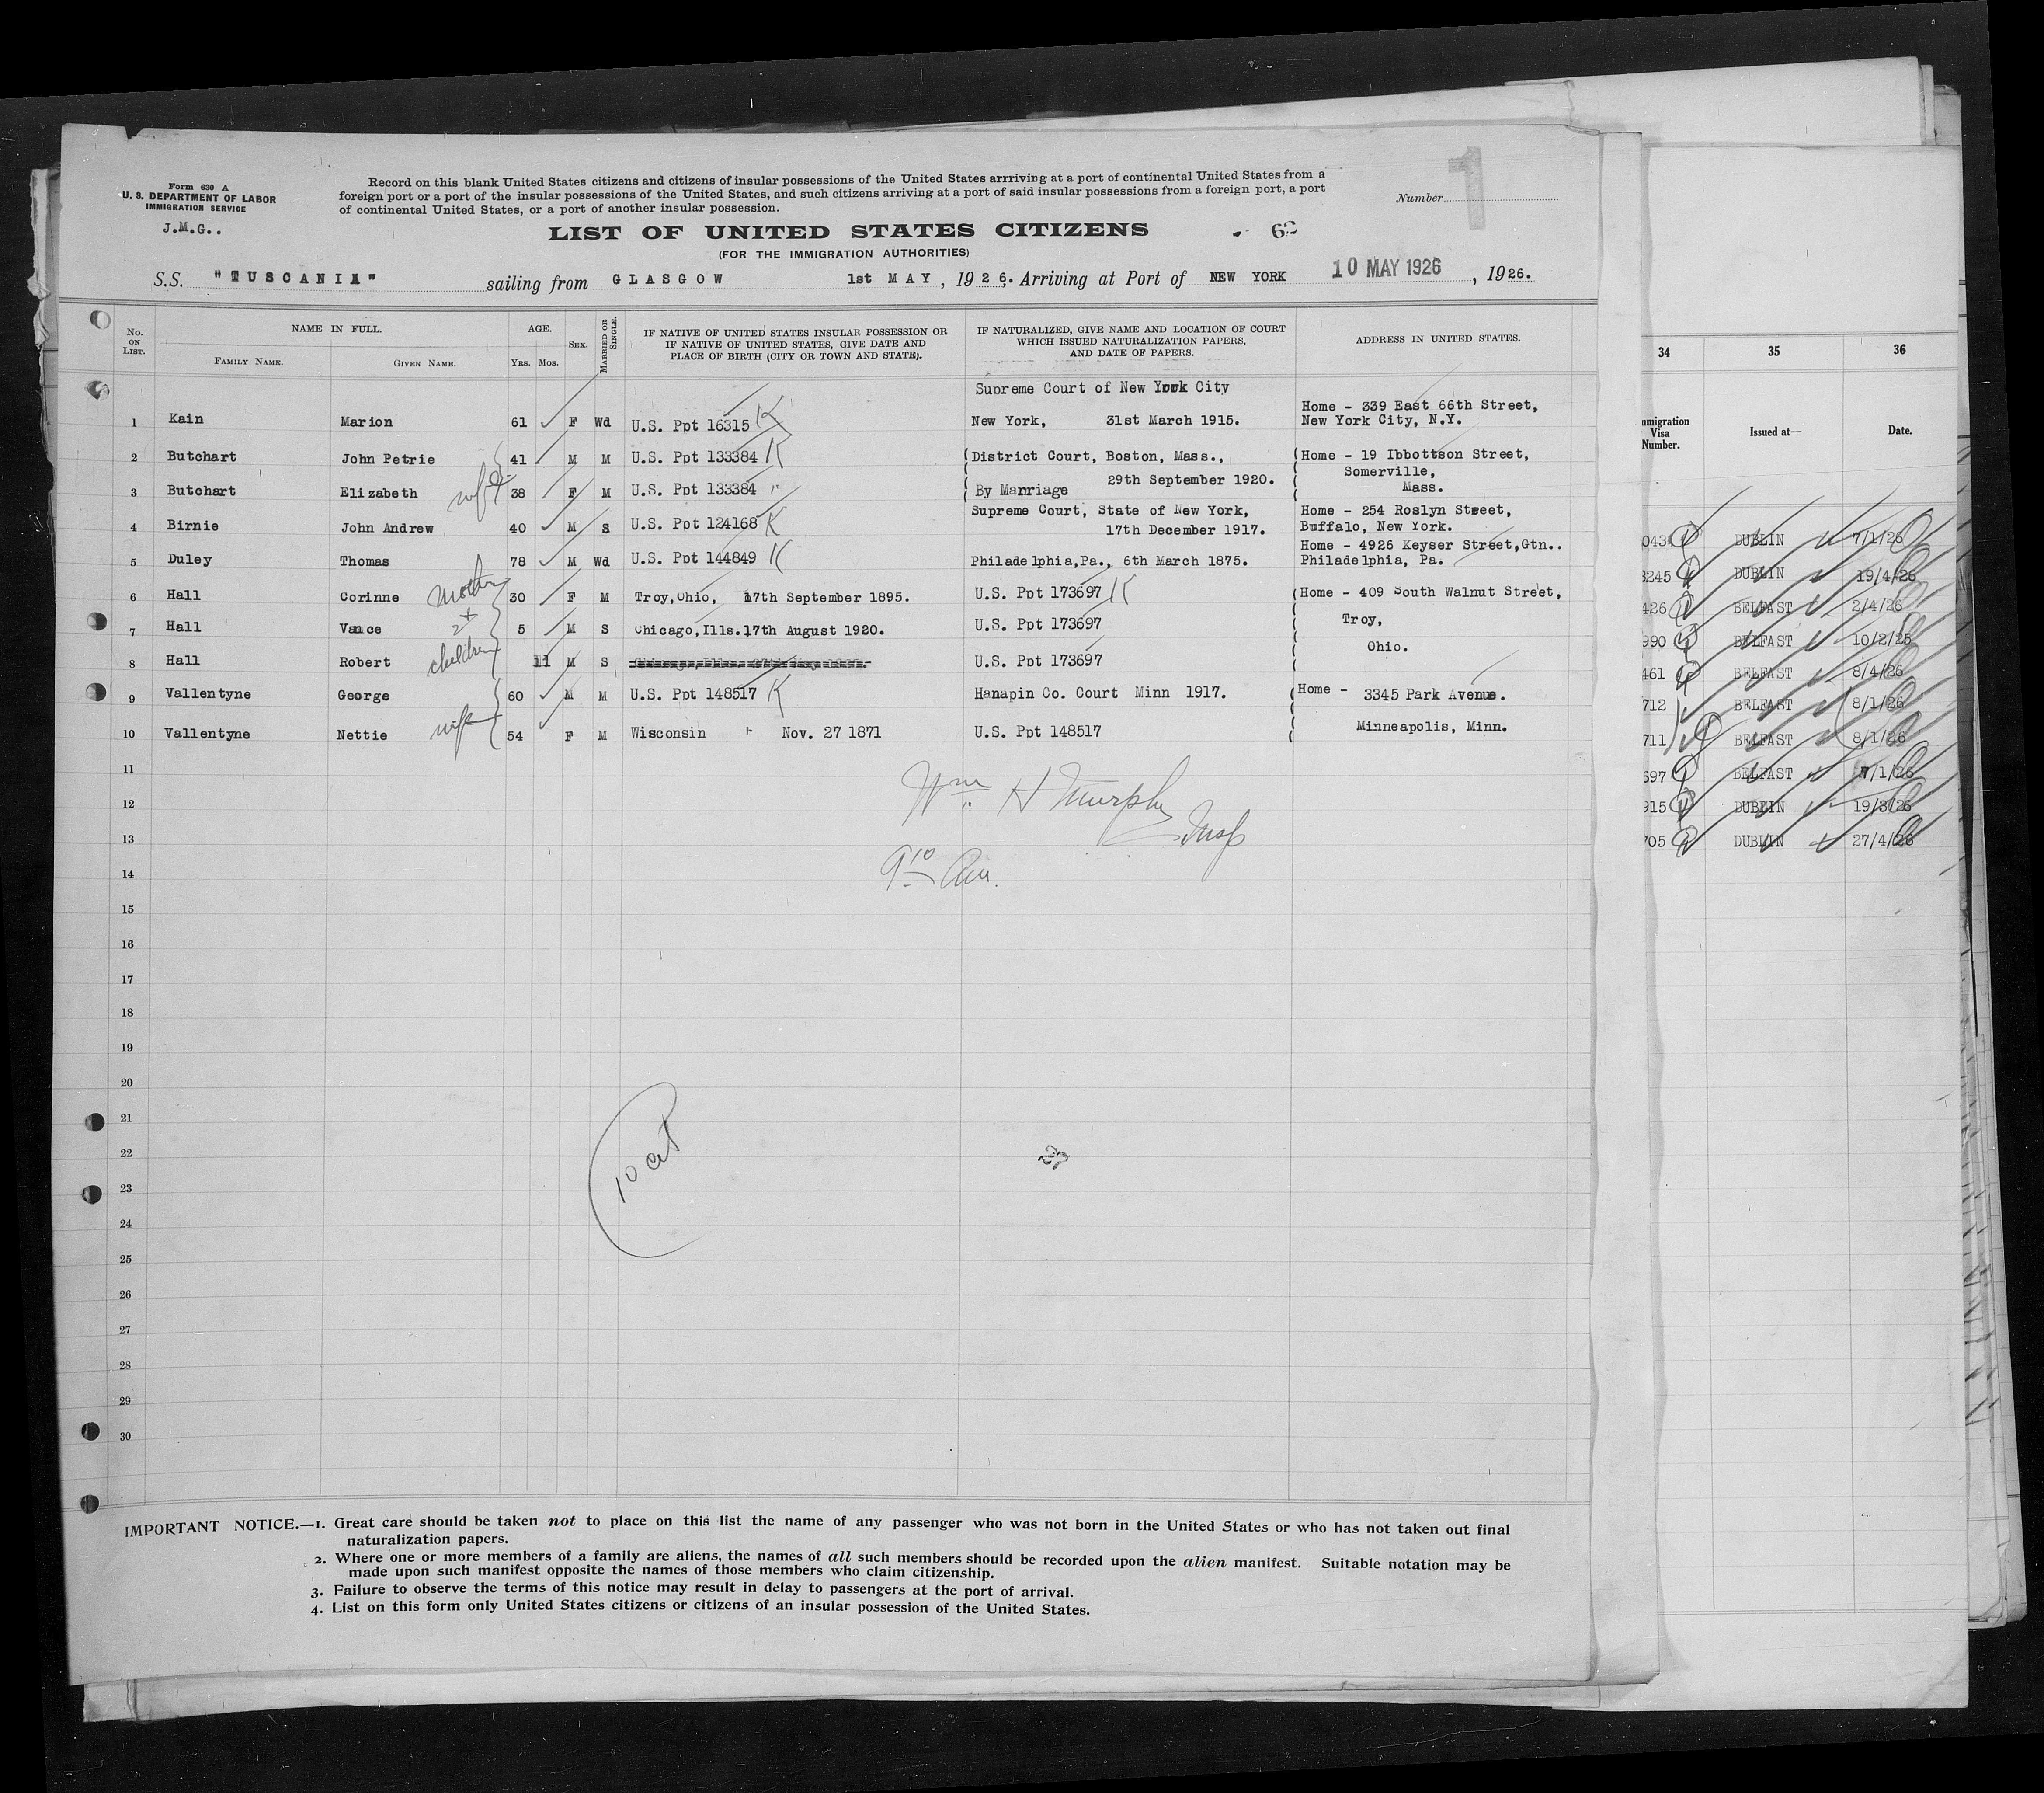 Form 630 A
U. S. DEPARTMENT OF LABOR
IMMIGRATION SERVICE
J.M.G..
Record on this blank United States citizens and citizens of insular possessions of the United States arrriving at a port of continental United States from a
foreign port or a port of the insular possessions of the United States, and such citizens arriving at a port of said insular possessions from a foreign port, a port
of continental United States, or a port of another insular possession.
Number
1
LIST OF UNITED STATES CITIZENS
(FOR THE IMMIGRATION AUTHORITIES)
S.S. "TUSCANIA" sailing from GLASGOW 1st MAY, 1926. Arriving at Port of NEW YORK 10 MAY 1926, 1926.
No. ON LIST.
NAME IN FULL.
FAMILY NAME.
GIVEN NAME.
AGE.
Yrs. Mos.
SEX.
MARRIED OR SINGLE.
IF NATIVE OF UNITED STATES INSULAR POSSESSION OR
IF NATIVE OF UNITED STATES, GIVE DATE AND
PLACE OF BIRTH (CITY OR TOWN AND STATE).
IF NATURALIZED, GIVE NAME AND LOCATION OF COURT
WHICH ISSUED NATURALIZATION PAPERS,
AND DATE OF PAPERS.
ADDRESS IN UNITED STATES.
Supreme Court of New York City
1 Kain Marion 61 F Wd U.S. Ppt 16315 K New York, 31st March 1915. Home - 339 East 66th Street,
New York City, N.Y.
2 Butchart John Petrie 41 M M U.S. Ppt 133384 K District Court, Boston, Mass., Home - 19 Ibbottson Street,
29th September 1920. Somerville,
3 Butchart Elizabeth wife 38 F M U.S. Ppt 133384 " By Marriage Mass.
Supreme Court, State of New York, Home - 254 Roslyn Street,
4 Birnie John Andrew 40 M S U.S. Ppt 124168 K 17th December 1917. Buffalo, New York.
Home - 4926 Keyser Street,Gtn..
5 Duley Thomas 78 M Wd U.S. Ppt 144849 K Philadelphia,Pa., 6th March 1875. Philadelphia, Pa.
6 Hall Corinne Mother 30 F M Troy,Ohio, 17th September 1895. U.S. Ppt 173697 K Home - 409 South Walnut Street,
7 Hall Vance 2 5 M S Chicago,Ills.17th August 1920. U.S. Ppt 173697 Troy,
8 Hall Robert children 11 M S U.S. Ppt 173697 Ohio.
9 Vallentyne George 60 M M U.S. Ppt 148517 K Hanapin Co. Court Minn 1917. Home - 3345 Park Avenue.
10 Vallentyne Nettie wife 54 F M Wisconsin Nov. 27 1871 U.S. Ppt 148517 Minneapolis, Minn.
11
12
13
14
15
16
17
18
19
20
21
22
23
24
25
26
27
28
29
30
Wm. H Murphy
Insp
9 10 Am.
10 cit
IMPORTANT NOTICE.—1. Great care should be taken not to place on this list the name of any passenger who was not born in the United States or who has not taken out final
naturalization papers.
2. Where one or more members of a family are aliens, the names of all such members should be recorded upon the alien manifest. Suitable notation may be
made upon such manifest opposite the names of those members who claim citizenship.
3. Failure to observe the terms of this notice may result in delay to passengers at the port of arrival.
4. List on this form only United States citizens or citizens of an insular possession of the United States.
34 35 36
Visa
Number.
Issued at—
Date.
043 DUBLIN 7/1/26
245 DUBLIN 19/4/26
426 BELFAST 2/4/26
990 BELFAST 10/2/25
461 BELFAST 8/4/26
712 BELFAST 8/1/26
711 BELFAST 8/1/26
697 BELFAST 7/1/26
915 DUBLIN 19/3/26
705 DUBLIN 27/4/26